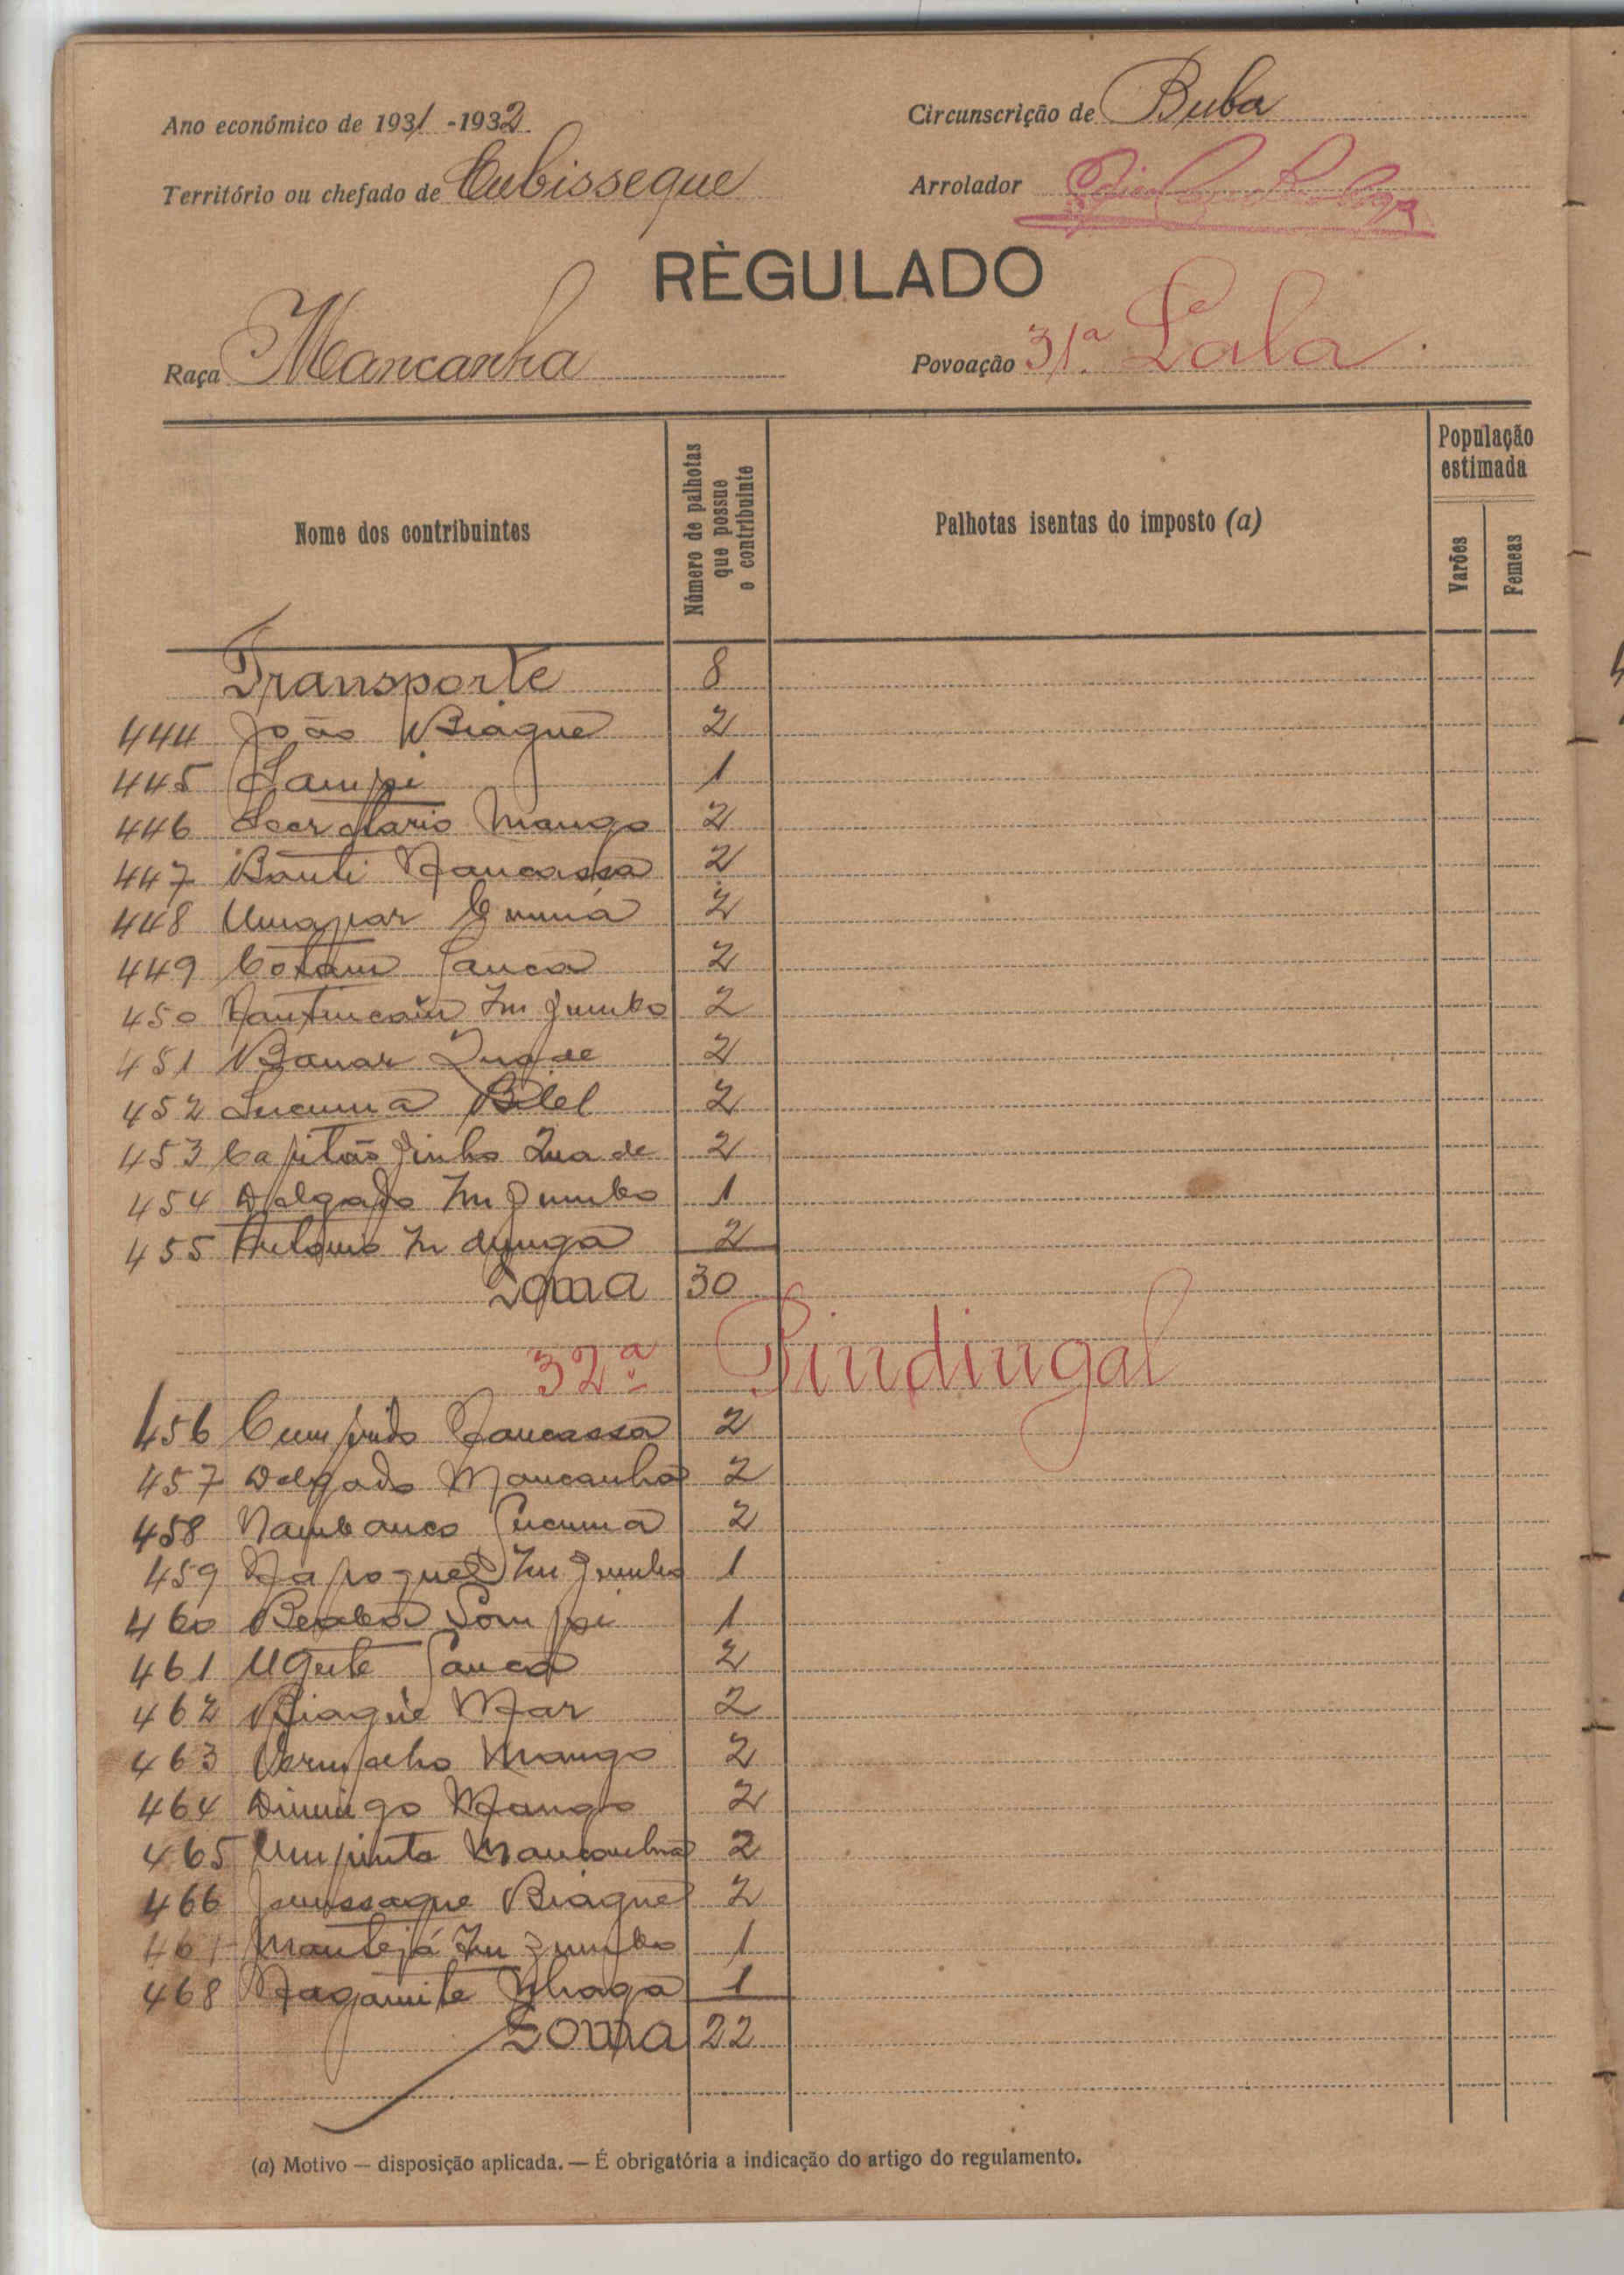 Ano económico de 1931 -1932.
Circunscrição de Buba
Território ou chefado de Cubisseque
Arrolador
RÈGULADO
Raça Mancanha
Povoação 31ª Lala
Nome dos contribuintes
Número de palhotas que possue o contribuinte
Palhotas isentas do imposto (a)
População estimada
Varões
Femeas
Transporte 8
444 João Biague 2
445 Sampi 1
446 Mango 2
447 Banti Nancassa 2
448 Umapar 2
449 Cotam Sanca 2
450 Im Jumbo 2
451 Banar 2
452 Lucuma Bilel 2
453 Capitão Jinho 2
454 Delgado Im Jumbo 1
455 António In 2
Soma 30
32ª Sindingal
456 Cumprido Nancassa 2
457 Delgado Mancanha 2
458 Nambanco 2
459 Im Jumbo 1
460 Sompi 1
461 Sanca 2
462 Biague Nar 2
463 Vermelho Mango 2
464 Dimingo Mango 2
465 Umpinta Mancanha 2
466 Biague 2
467 Im Jumbo 1
468 1
Soma 22
(a) Motivo — disposição aplicada. — É obrigatória a indicação do artigo do regulamento.